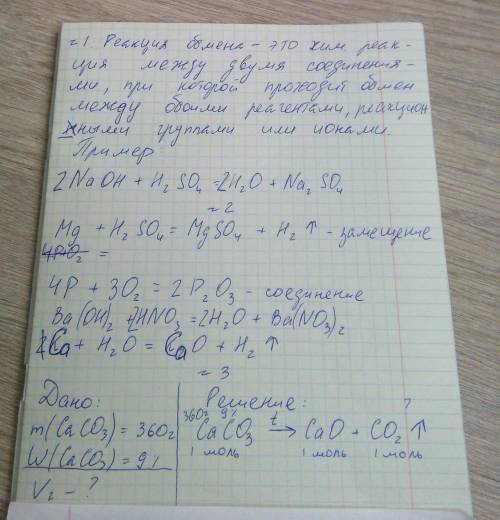 =1. Реакция обмена - это хим. реак-
ция между двумя соединения-
ми, при которой проходит обмен
между обоими реагентами, реакцион
ными группами или ионами.
Пример
2NaOH + H₂SO₄ = 2H₂O + Na₂SO₄
=2
Mg + H₂SO₄ = MgSO₄ + H₂↑ - замещение
=
4P + 3O₂ = 2P₂O₃ - соединение
Ba(OH)₂ + 2HNO₃ = 2H₂O + Ba(NO₃)₂
Ca + H₂O = CaO + H₂↑
=3
Дано:
m(CaCO₃) = 360г
W(CaCO₃) = 9%
V₂ - ?
Решение:
360г 9% ?
CaCO₃ t→ CaO + CO₂↑
1 моль 1 моль 1 моль